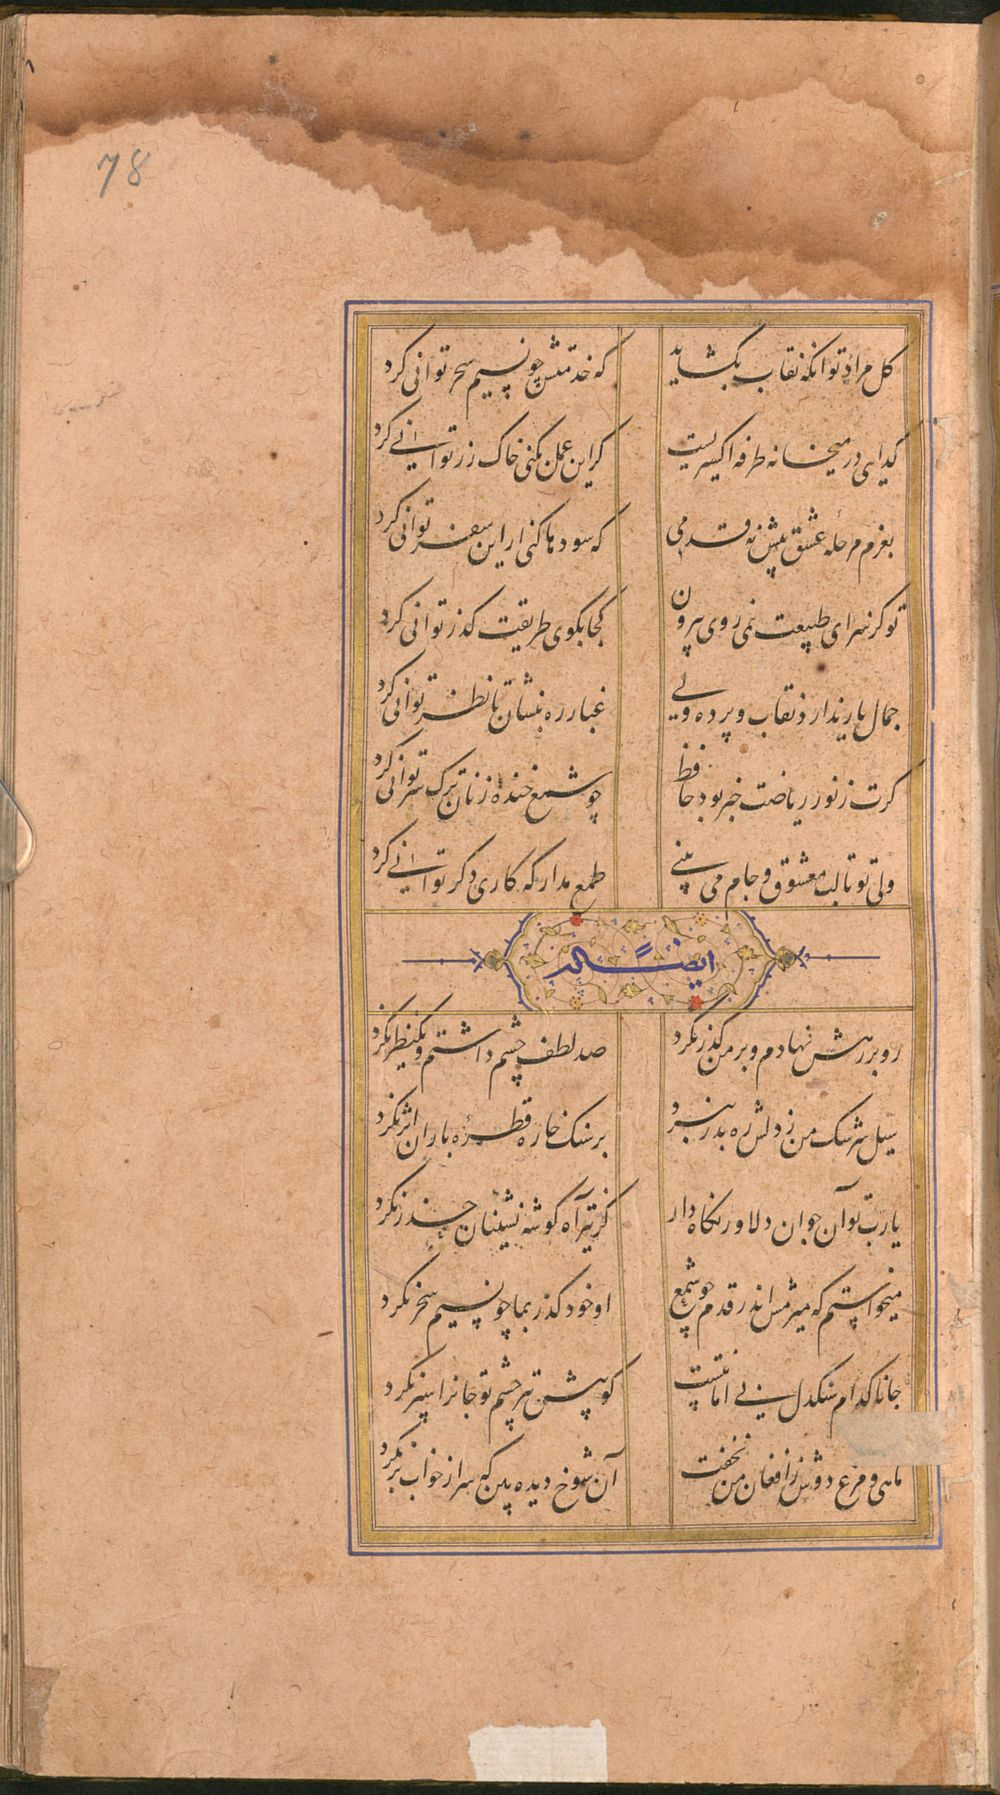 78
کل مراد تو آنکه نقاب بکشاید که خدمتش چو نسیم سحر توانی کرد
کدایی در میخانه طرفه اکسیریست کر این عمل بکنی خاک زر توانی کرد
بعزم مرحله عشق پیش نه قدمی که سودها کنی ار این سفر توانی کرد
تو کز سرای طبیعت نمی روی بیرون کجا بکوی طریقت کذر توانی کرد
جمال یار ندارد نقاب و پرده ولی غبار ره بنشان تا نظر توانی کرد
کرت ز نور ریاضت خبر بود حافظ چو شمع خنده زنان ترک سر توانی کرد
ولی تو تا لب معشوق و جام می بینی طمع مدار که کاری دکر توانی کرد
ایضاً له
رو بر رهش نهادم و بر من کذر نکرد صد لطف چشم داشتم و یکنظر نکرد
سیل سرشک من ز دلش ره بدر نبرد بر سنک خاره قطرهٔ باران اثر نکرد
یارب تو آن جوان دلاور نکاه دار کز تیر آه کوشه نشینان حذر نکرد
میخواستم که میرمش اندر قدم چو شمع او خود کذر بما چو نسیم سحر نکرد
جانا کدام سنکدل بی کو پیش تیر چشم تو جانرا سپر نکرد
ماهی و مرغ دوش ز افغان من نخفت آن شوخ دیده بین که سر از خواب بر نکرد